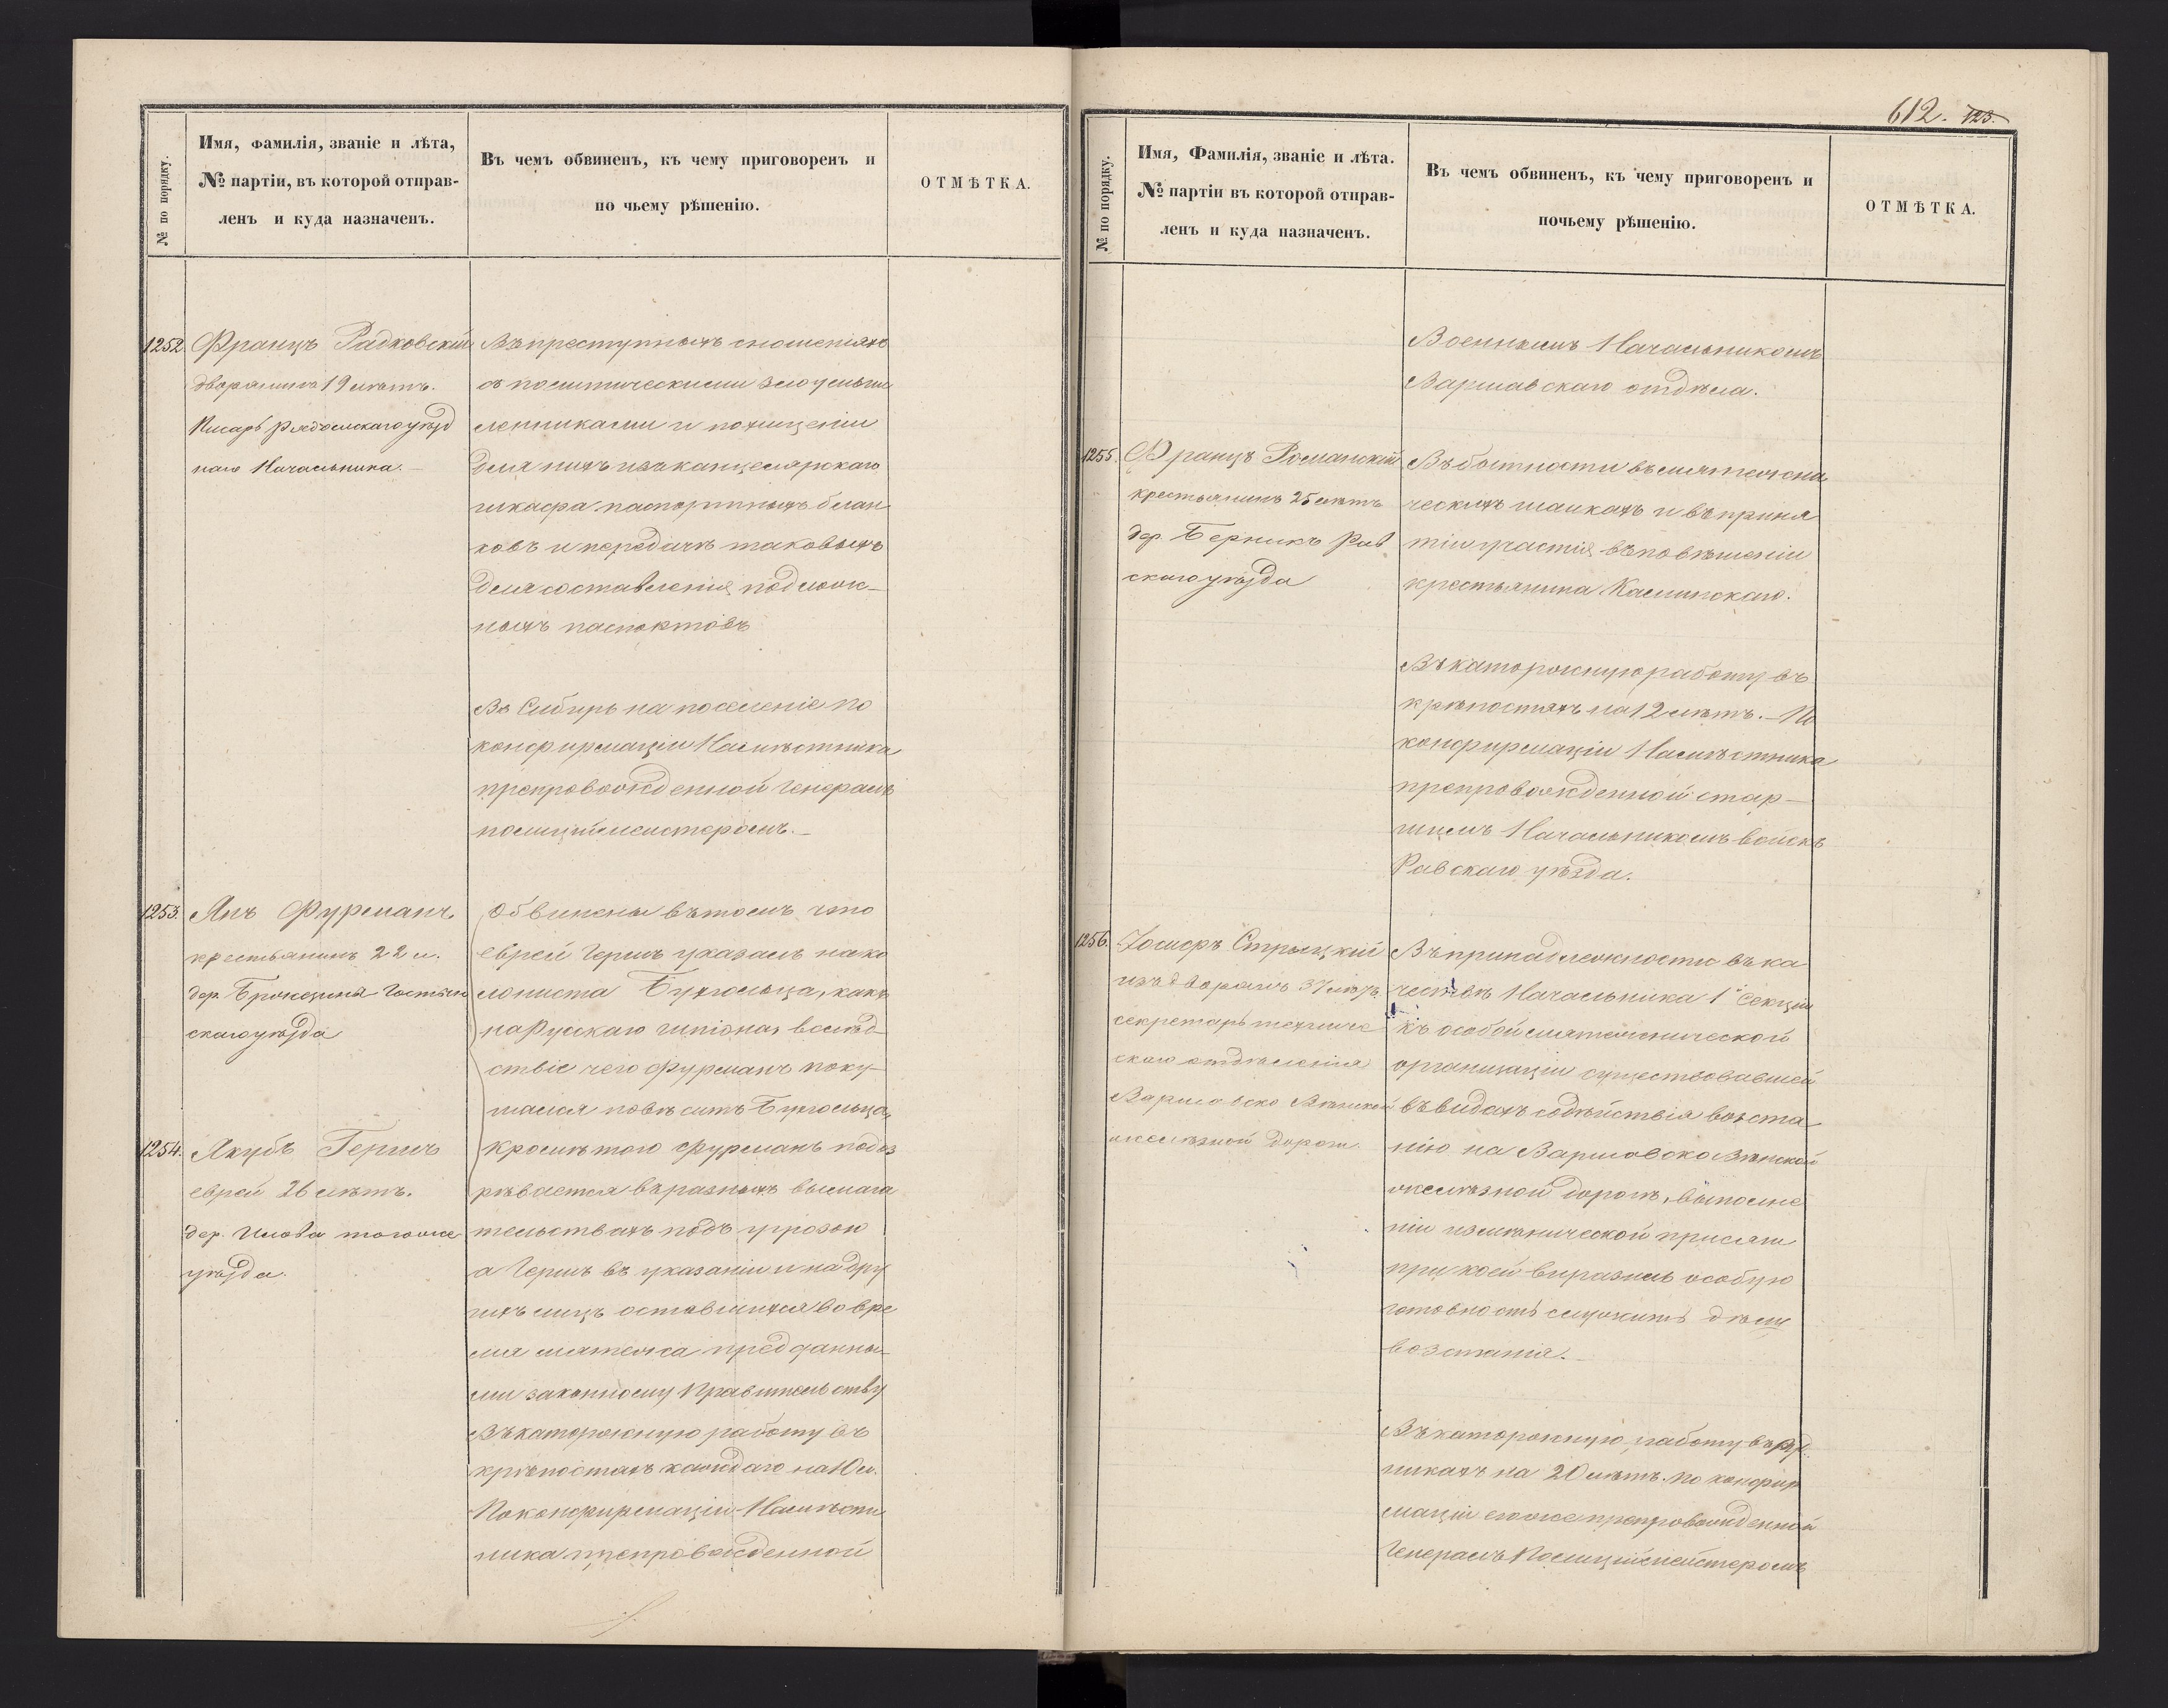 № по порядку.
Имя, фамилія, званіе и лѣта,
№ партіи, въ которой отправ-
ленъ и куда назначенъ.
Въ чемъ обвиненъ, къ чему приговоренъ и
по чьему рѣшенію.
ОТМѢТКА.
1252. Францъ Радковскій
дворянинъ 19 лѣтъ.
Писарь Радомскаго уѣзд
наго Начальника.
Въ преступныхъ сношеніяхъ
съ политическими злоумыш
ленниками и похищеніи
для нихъ изъ канцелярскаго
шкафа паспортныхъ блан
ковъ и передачѣ таковыхъ
для составленія подлож-
ныхъ паспортовъ
Въ Сибирь на поселеніе по
конфирмаціи Намѣстника
препровожденной Генералъ
полиціймейстеромъ.
1253. Янъ Фурманъ
крестьянинъ 22 л.
дер. Гостын
скаго уѣзда
1254. Якубъ Гершъ
еврей 26 лѣтъ.
дер. Илова того же
уѣзда.
Обвинены въ томъ что
еврей Гершъ указалъ на ко
лониста Бухгольца, какъ
на Русскаго шпіона, вслѣд-
ствіе чего Фурманъ поку-
шался повѣсить Бухгольца,
кромѣ того Фурманъ подоз
рѣвается въ разныхъ вымога
тельствахъ подъ угрозою
а Гершъ въ указаніи и на дру
гихъ лицъ оставшихся во вре
мя мятежа преданны-
ми законному Правительству
Въ каторжную работу въ
крѣпостяхъ каждаго на 10 л.
По конфирмаціи Намѣстн
ника препровожденной
612. 123.
№ по порядку.
Имя, Фамилія, званіе и лѣта.
№ партіи въ которой отправ-
ленъ и куда назначенъ.
Въ чемъ обвиненъ, къ чему приговоренъ и
почьему рѣшенію.
ОТМѢТКА.
Военнымъ Начальникомъ
Варшавскаго отдѣла.
1255. Францъ Романскій
крестьянинъ 25 лѣтъ
дер. Берникъ Рав
скаго уѣзда
Въ бытности въ мятежни
ческихъ шайкахъ и въ приня
тіи участія въ повѣшеніи
крестьянина Калинскаго.
Въ каторжную работу въ
крѣпостяхъ на 12 лѣтъ. – По
конфирмаціи Намѣстника
препровожденной стар-
шимъ Начальникомъ войскъ
Равскаго уѣзда.
1256. Іосифъ Стрыцкій
изъ дворянъ 37 лѣтъ
секретарь техниче
скаго отдѣленія
Варшавско Вѣнской
желѣзной дороги.
Въ принадлежности въ ка
чествѣ Начальника 1й Секціи
къ особой мятежнической
организаціи существовавшей
въ видахъ содѣйствія возста
нію на Варшавско Вѣнской
желѣзной дорогѣ, выполне
ніи измѣннической присяги
при коей выразилъ особую
готовность служить дѣлу
возстанія.
Въ каторжную работу въ руд
никахъ на 20 лѣтъ. по конфир
маціи его же препровожденной
Генералъ Полиціймейстеромъ